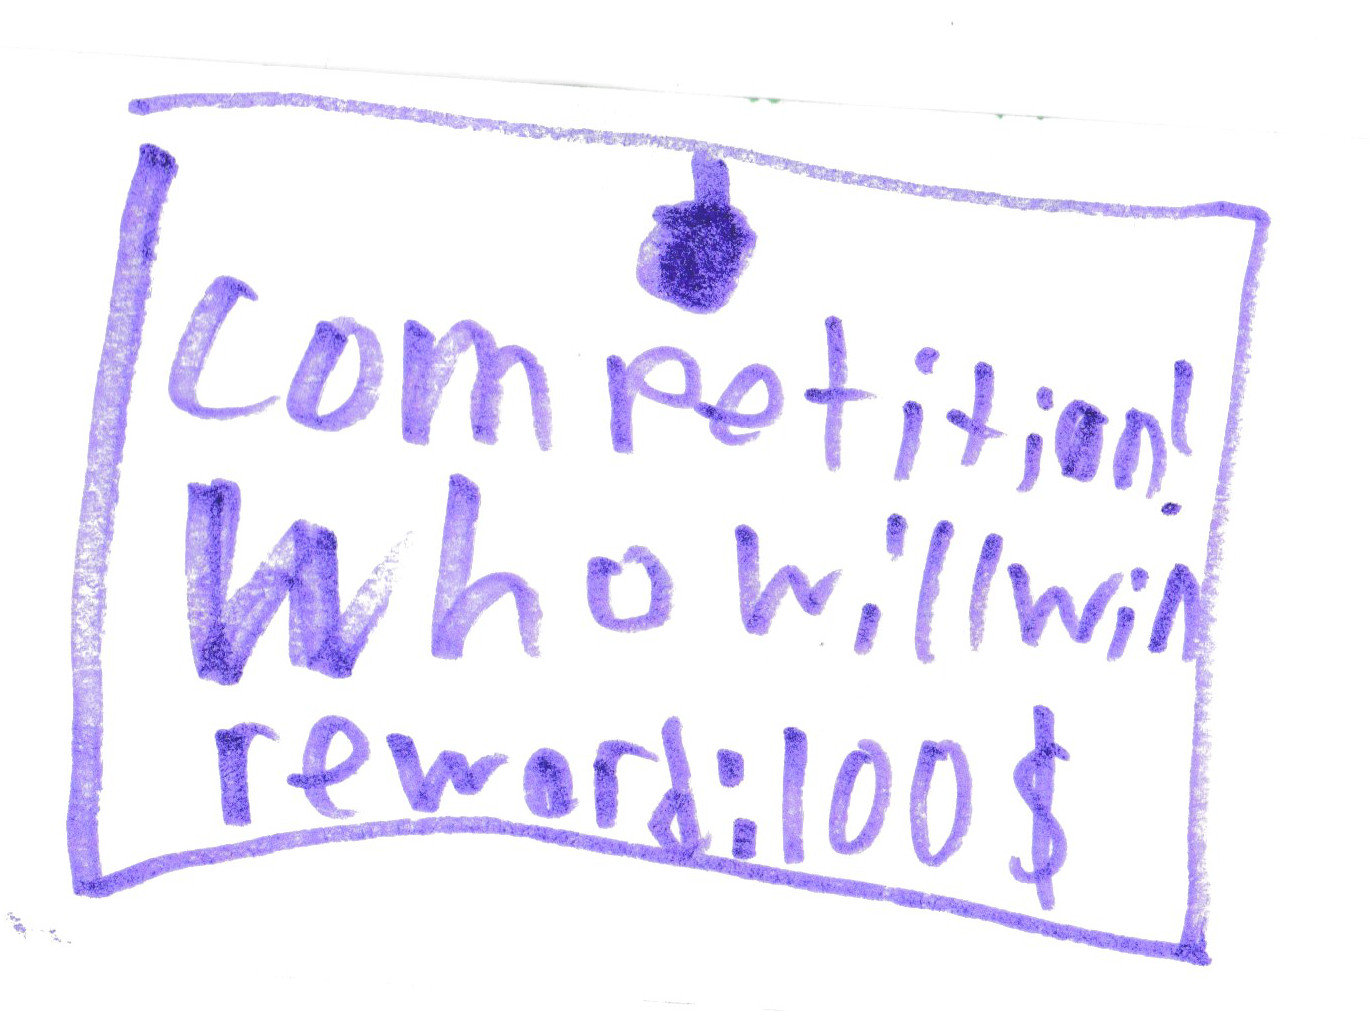 Competition!
Who will win
reward:100$